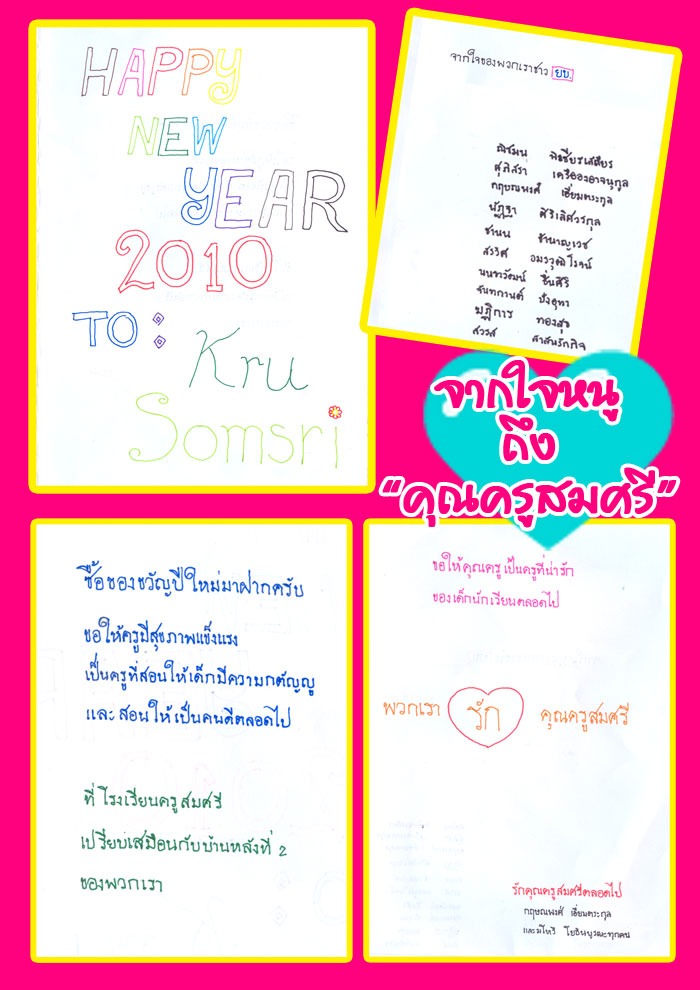 HAPPY
NEW
YEAR
2010
TO:
Kru
Somsri
จากใจของพวกเราชาว ยบ.
ณิชมน
ศุภิสรา
กฤษณพงศ์ เอี่ยมตระกูล
นัฏฐา ศิริเลิศวรกุล
ชานน ชำนาญเวช
สรวิศ อมรวุฒิโรจน์
นนทวัฒน์ ชื่นศิริ
จันทกานต์
ปฏิการ ทองสุข
สวรส ศาสนรักกิจ
จากใจหนู
ถึง
“คุณครูสมศรี”
ซื้อของขวัญปีใหม่มาฝากครับ
ขอให้ครูมีสุขภาพแข็งแรง
เป็นครูที่สอนให้เด็กมีความกตัญญู
และสอนให้เป็นคนดีตลอดไป
ที่โรงเรียนครูสมศรี
เปรียบเสมือนกับบ้านหลังที่ 2
ของพวกเรา
ขอให้คุณครูเป็นครูที่น่ารัก
ของเด็กนักเรียนตลอดไป
พวกเรา รัก คุณครูสมศรี
รักคุณครูสมศรีตลอดไป
กฤษณพงศ์ เอี่ยมตระกูล
และมโหรี โยธินบูรณะทุกคน